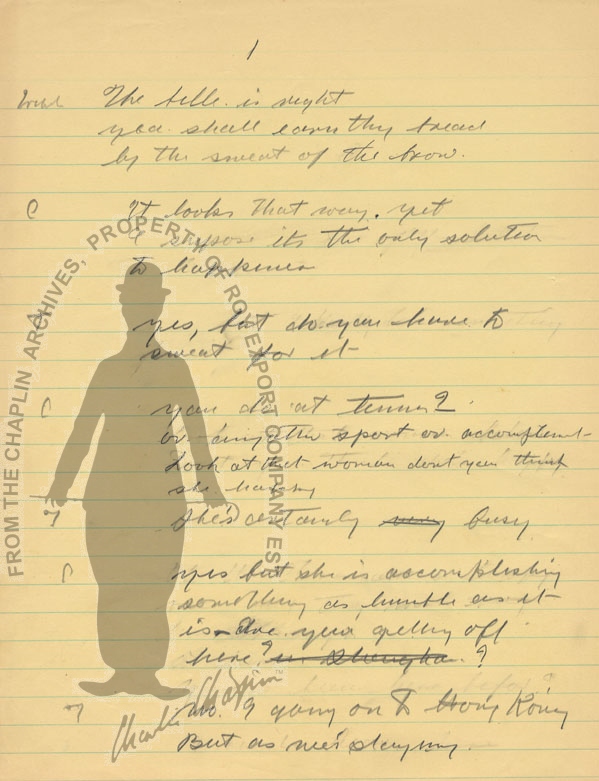 1
The bible is right
you shall earn thy bread
by the sweat of the brow.
C It looks that way. yet
I suppose its the only solution
to happiness
yes, but do you have to
sweat for it
C you do at tennis?
or any other sport or
Look at that woman dont you think
she happy
She's certainly very busy
yes but she is accomplishing
something as humble as it
is - Are you getting off
here? in Shanghai ?
No. I going on to Hong Kong
But as
FROM THE CHAPLIN ARCHIVES, PROPERTY OF ROY EXPORT COMPANY EST
Charlie Chaplin